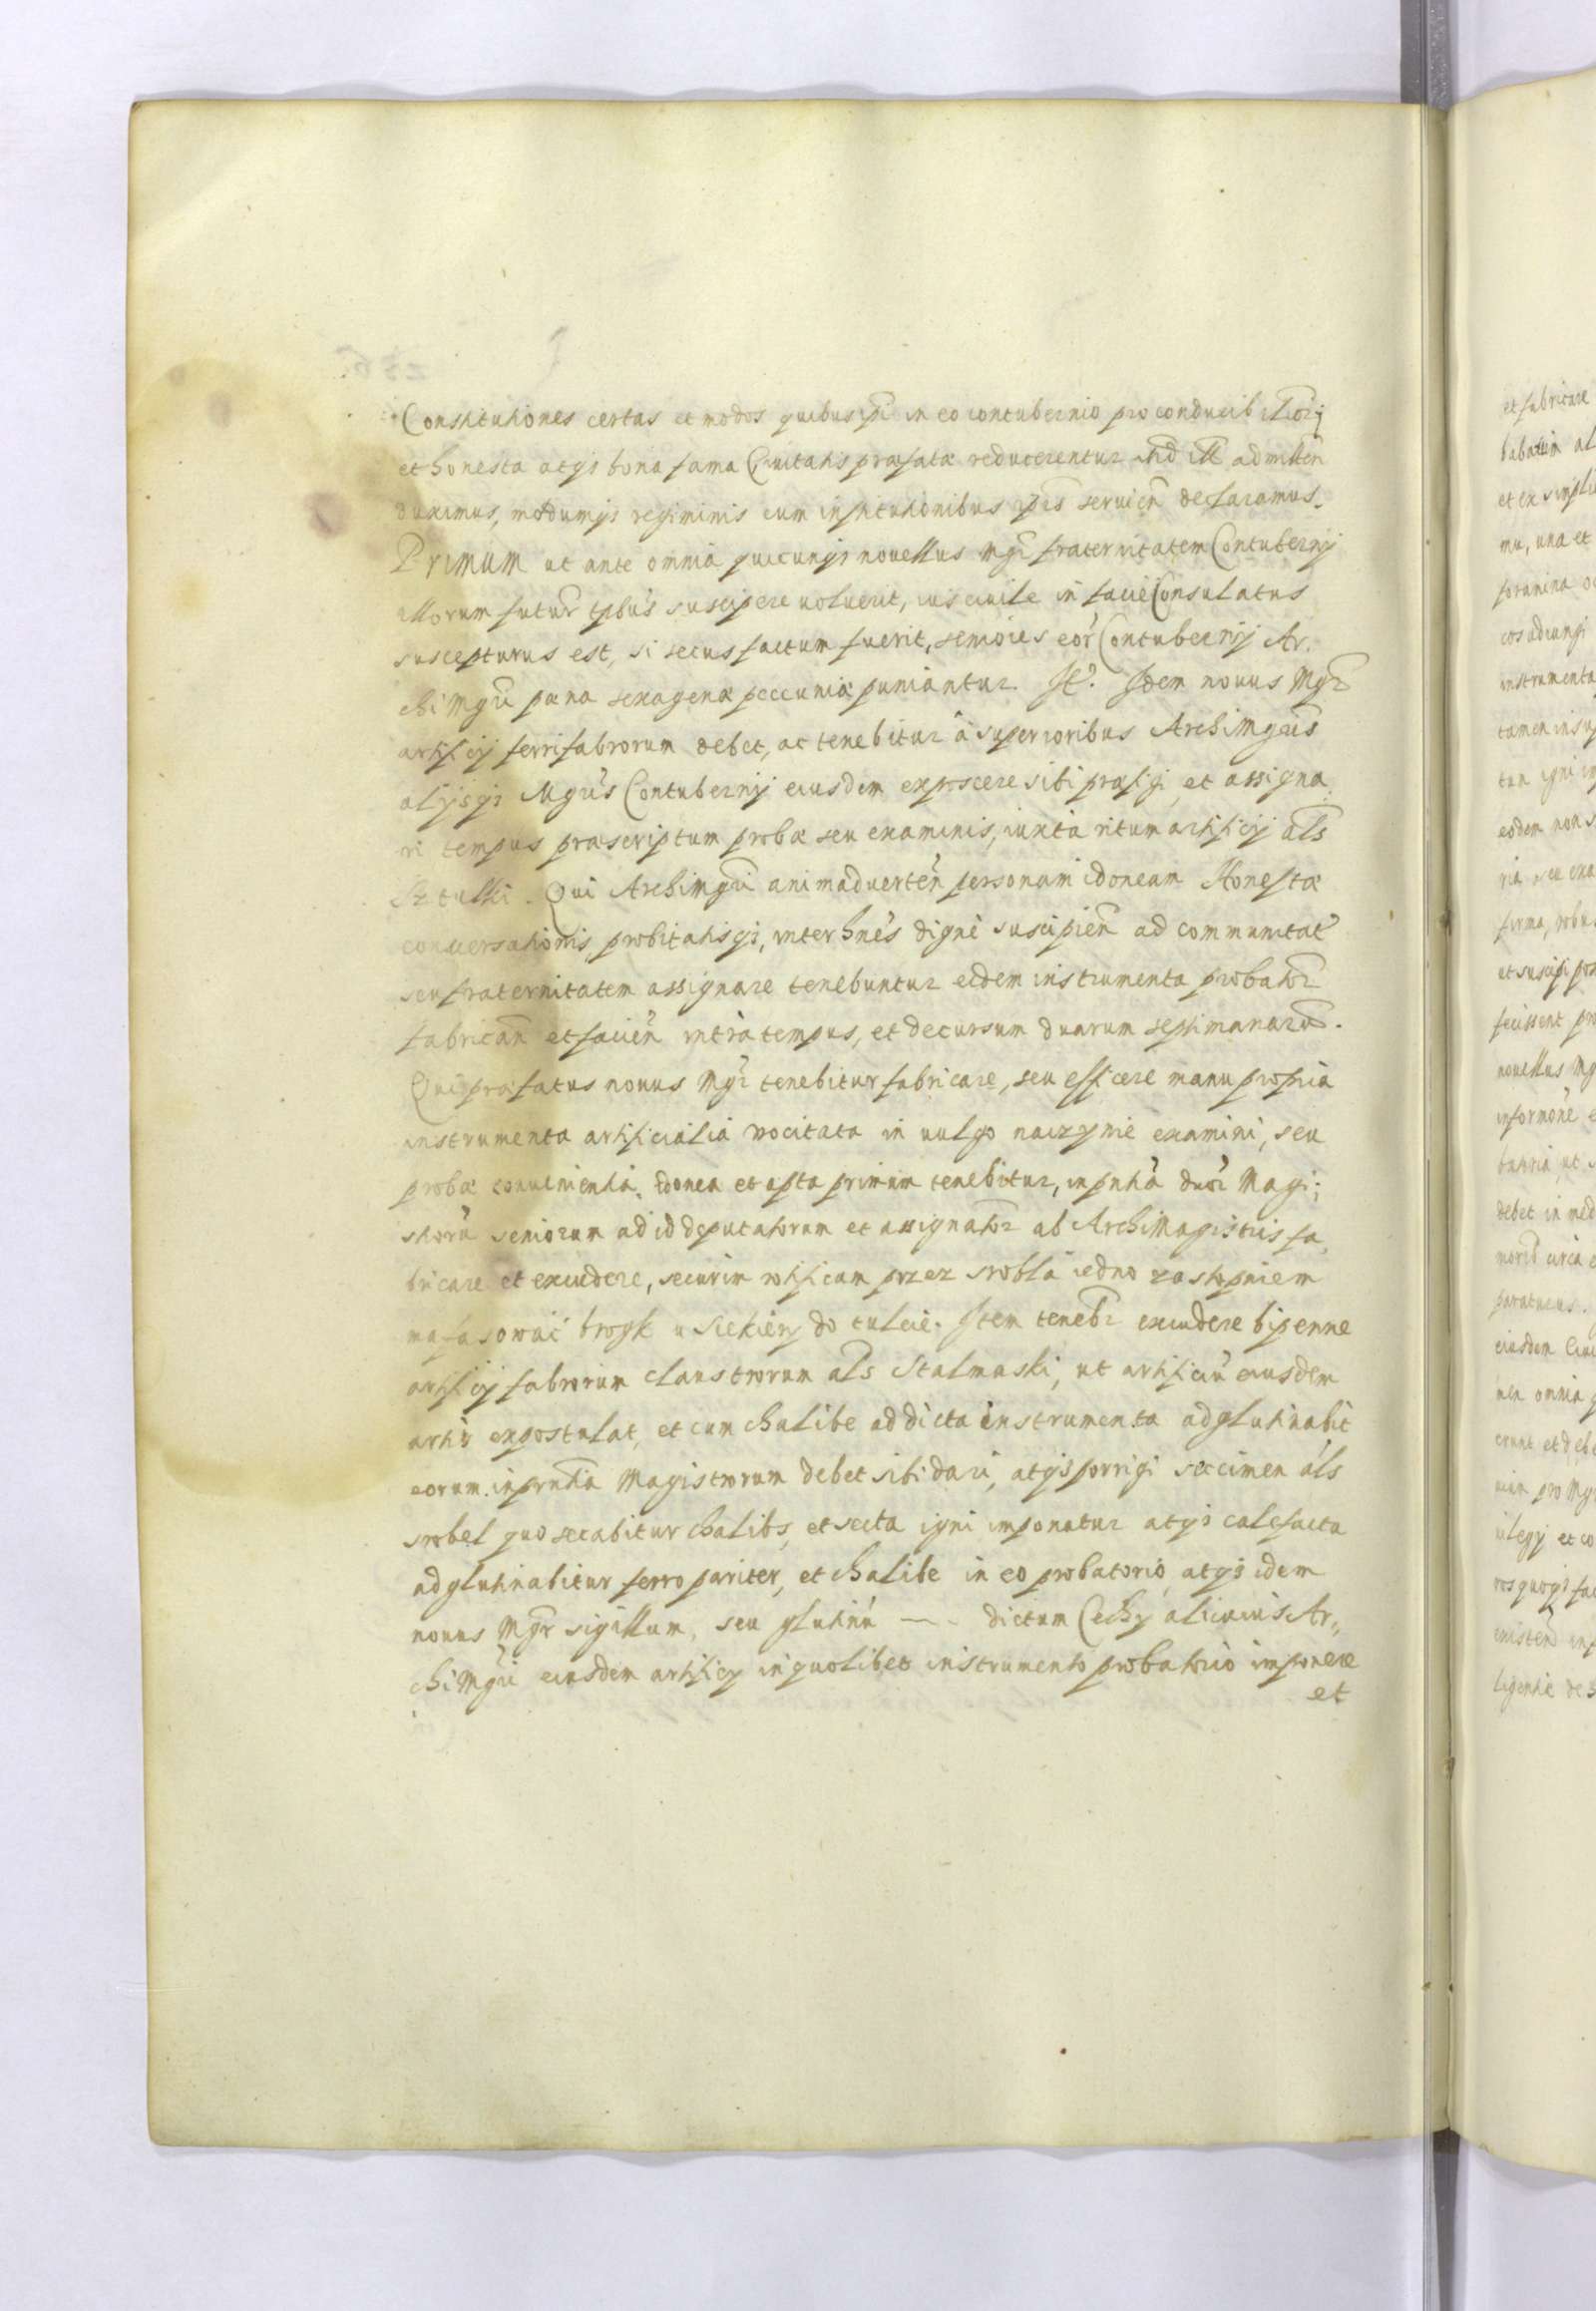 Constitutiones certas et modos quibus ipsi in eo contubernio pro conducib illorq
et honesta atqs bona fama Civitatis præfatæ reducerentur admitten
duximus, modumqs regiminis cum institutionibus ipis servien declaramus.
Primum ut ante omnia quicunqs novellus Mgr fraternitatem Contubernij
illorum futur tpbus suscipere voluerit, ius civile in facie Consulatus
suscepturus est, si secus factum fuerit, seniores eor Contubernij Ar.
chi Mgri pæna sexagenæ peccuniæ puniantur. It. Idem novus Mgr
artificij ferrifabrorum debet, ac tenebitur à superioribus Archimgris
alijsqs Mgris Contubernij eiusdem exposcere sibi præfigi et assigna
ri tempus præscriptum probæ seu examinis, iuxta ritum artificij als
Sztulki. Qui Archimgri animaduerten personam idoneam Honestæ
conversationis, probitatisqs, inter hnes digne suscipien ad communitat
seu fraternitatem assignare tenebuntur eidem instrumenta probator
fabrican et facien intra tempus, et decursum duarum septimanaru.
Qui præfatus novus Mgr tenebitur fabricare, seu efficere manu propria
instrumenta artificialia vocitata in vulgo naczynie examini, seu
probæ convenientia, idonea et apta primum tenebitur, in pntia duor Magi;
storu seniorum ad id deputatorum et assignator ab Archimagistris fa
bricare et excudere, securim rosificam przez srobla iedno zastopniem
nafasowac brogk u Siekiery do tulcie. Item tenebr excudere bipenne
artificij fabrorum claustrorum als Stalmaski, ut artificiu eiusdem
artis expostulat, et cum chalibe ad dicta instrumenta adglutinabit
eorum. in prntia Magistrorum debet sibi dari, atqs porrigi seccimen als
srobel quo secabitur chalibs, et secta igni imponatur atqs calefacta
adglutinabitur ferro pariter, et chalibe in eo probatorio, atqs idem
novus Mgr sigillum, seu glutinu —- dictum Cechy alicuius Ar„
chi Mgri eiusdem artificij in quolibet instrumento probatorio imponere
et